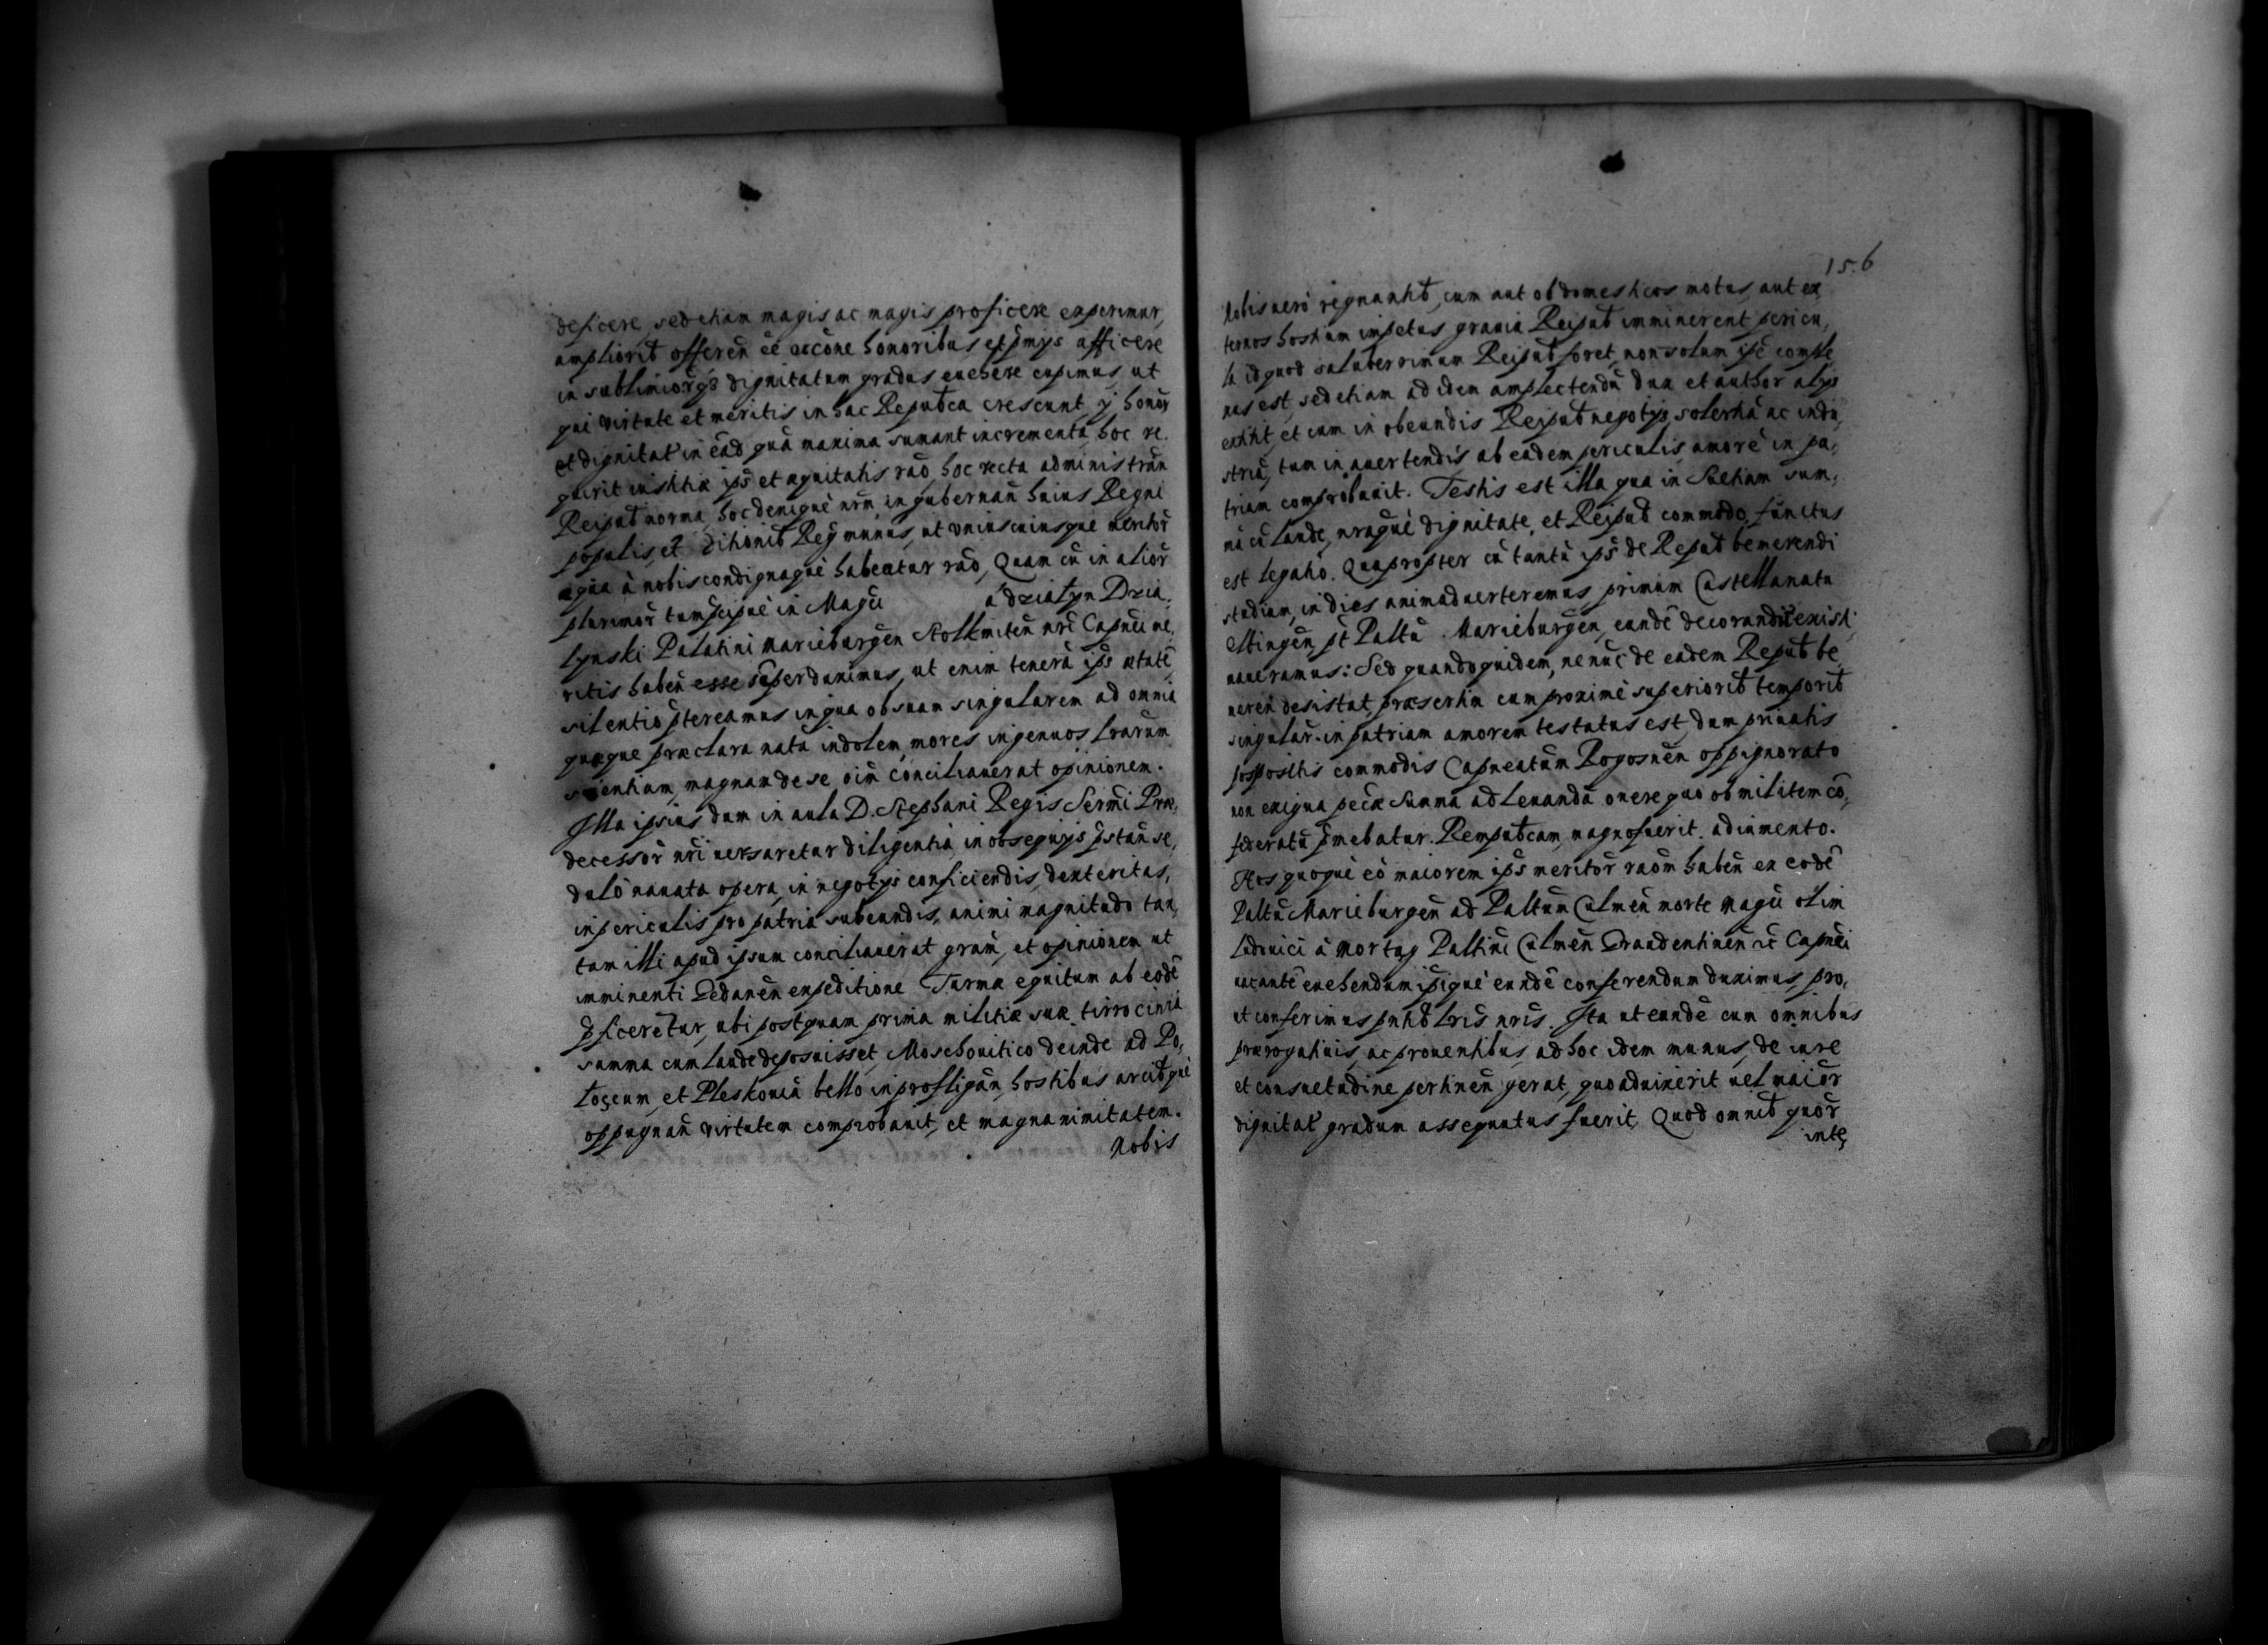 deficere, sed etiam magis ac magis proficere experimur,
ampliorib offeren̄ ee occōne honoribus et p̄mijs afficere
in sublimiorq́s dignitatum gradus euehere cupimus, ut
qui virtute et meritis in hac Repubca crescunt, ij honor
et dignitat in ead quā maxima sumant incrementa, hoc re,
quirit iustitiæ ips et æquitatis rāo, hoc recta administrān
Reipub norma, hoc denique nrm in gubernan̄ huius Regni
populis, et ditionib Regÿ munus, ut vniuscuiusque meritor
æqua à nobis condignaque habeatur rāo, Quam cū in alior
plurimor tum p̄cipue in Magci a dziaÿn Dzia,
lynski Palatini Marieburgen̄ Stolkmiten̄ nri Capnei me,
ritis haben̄ esse sēper duximus, ut enim tenerā ips ætatē
silentio p̄tereamus in qua ob suam singularem ad omnia
quæque præclara nata indolem, mores ingenuos lrarum
scientiam, magnam de se oim conciliauerat opinionem.
Illa ipsius dum in aula D. Stephani Regis Sermi Præ,
decessor nri uersaretur diligentia, in obsequijs p̄stan̄ se,
dulo nauata opera, in negotijs conficiendis, dexteritas,
in periculis pro patria subeundis, animi magnitudo tan,
tam illi apud ipsum conciliauerat gram̄, et opinionem ut
imminenti Gedanen̄ expeditione Turmæ equitum ab eodē
p̄ficeretur, ubi postquam prima militiæ suæ tirrocinia
summa cum laude deposuisset, Moschouitico deinde ad Po,
loscum, et Pleskouiā bello in profligan̄ hostibus arcibque
oppugnan̄ virtutem comprobauit, et magnanimitatem.
Nobis
156
Nobis uero regnantib, cum aut ob domesticos motus, aut ex,
ternos hostium impetus grauia Reipub imminerent pericu,
la id quod saluberrimum Reipub foret, non solum ipē comple
xus est, sed etiam ad idem amplectendū dux et author alijs
extitit, et cum in obeundis Reipub negotijs, solertiā ac indu,
striā, tum in auertendis ab eadem periculis, amorē in pa,
triam comprobauit. Testis est illa qua in Suetiam sum,
ma cū laude, nraque dignitate, et Reipub commodo, functus
est legatio. Quapropter cū tantū ips de Repub bemerendi
studium, in dies animaduerteremus primum Castellanatu
Elbingen̄, pt Paltu Marieburgen, eundē decorandū existi,
maueramus: Sed quandoquidem, ne nuc de eadem Repub be,
meren̄ desistat, præsertim cum proxime superiorib temporib
singular in patriam amorem testatus est, dum priuatis
postpositis commodis Capneatum Rogosnen̄ oppignorato
non exigua pecæ Summa ad leuandū onere quo ob militem cō,
federatū p̄mebatur. Rempubcam, magno fuerit adiumento.
Nos quoque eò maiorem ips meritor raom̄ haben̄ ex eodē
Paltu Marieburgen̄ ad Paltum Culmen̄ morte Magci olim
Ludouici à Mortaÿ Paltini Culmen̄ Graudentinen̄ ic Capnei
uacantē euehendum ipique eundē conferendum duximus, pro,
ut conferimus pntib lris nris. Ita ut eundē cum omnibus
prærogatiuis, ac prouentibus, ad hoc idem munus, de iure
et consuetudine pertinen̄ gerat, quoad uixerit uel maior
dignitat gradum assequutus fuerit, Quod omnib quor
intē